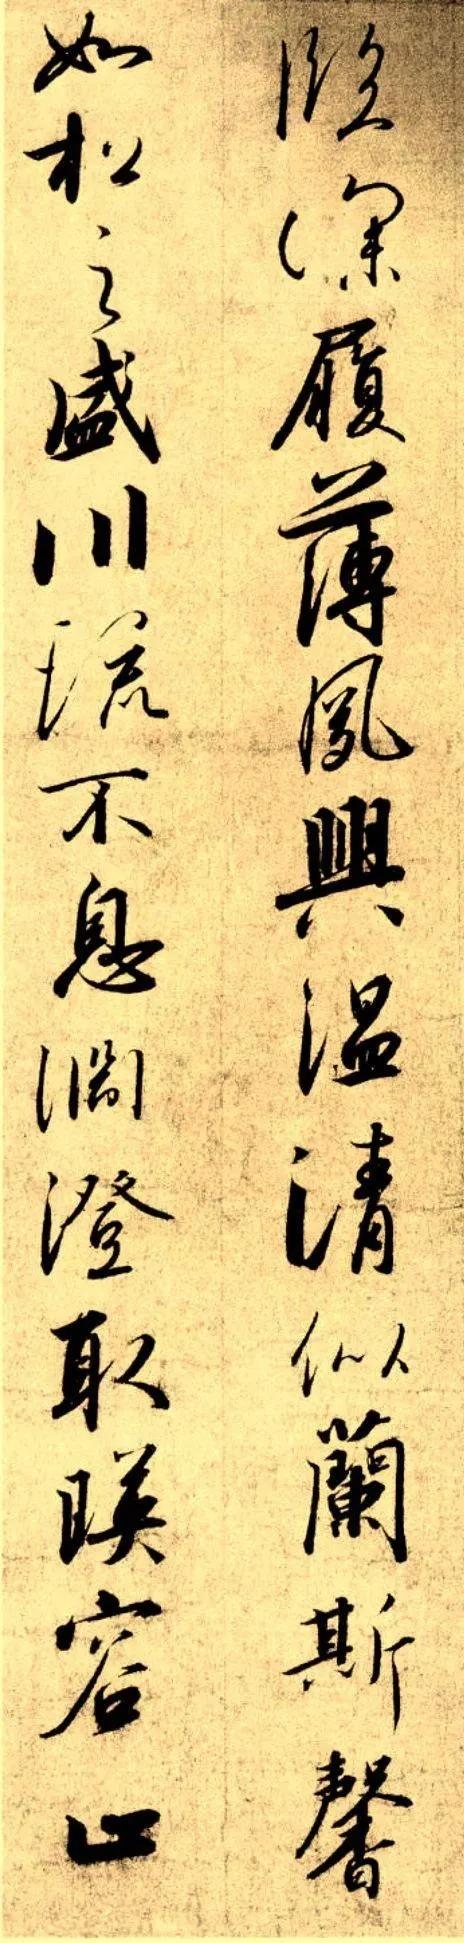 臨深履薄夙興温清似蘭斯馨
如松之盛川流不息淵澄取暎容止